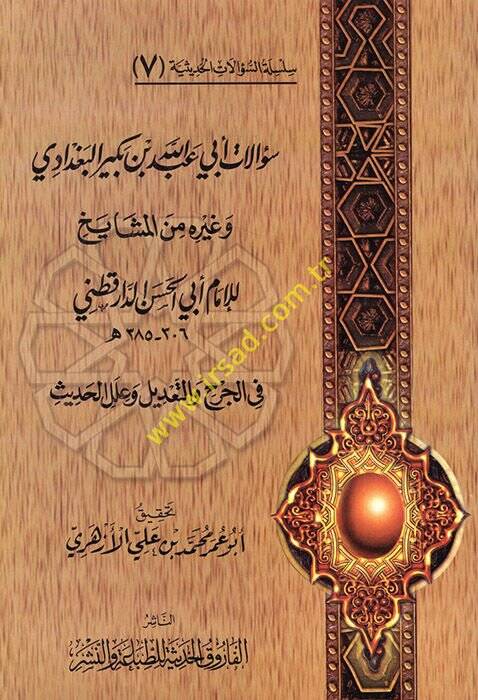 سلسلة السؤالات الحديثية (٧)
سؤالات أبي عبد الله بن بكير البغدادي
وغيره من المشايخ
للإمام أبي الحسن الدارقطني
٣٠٦-٣٨٥ هـ
في الجرح والتعديل وعلل الحديث
www.irsad.com.tr
تحقيق
أبو عمر محمد بن علي الأزهري
الناشر
الفاروق الحديثة للطباعة والنشر